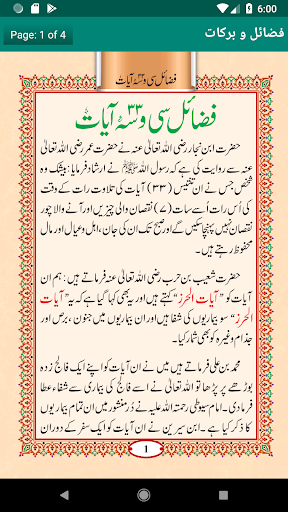 6:00
Page: 1 of 4
فضائل و برکات
فضائل سی و سہ آیات
فضائل سی و سہ ۳۳ آیات
حضرت ابن نجار رضی اللہ تعالیٰ عنہ نے حضرت عمر رضی اللہ تعالیٰ
عنہ سے روایت کی ہے کہ رسول اللہ ﷺ نے ارشاد فرمایا: بیشک وہ
شخص جس نے ان تینتیس (۳۳) آیات کی تلاوت رات کے وقت
کی اُس رات اُسے سات (۷) نقصان والی چیزیں اور آنے والا چور
نقصان نہیں پہنچا سکیں گے اور صبح تک ان کی جان، اہل و عیال اور مال
محفوظ رہتے ہیں۔
حضرت شعیب بن حرب رضی اللہ تعالیٰ عنہ فرماتے ہیں: ہم ان
آیات کو ”آیات الحرز“ کہتے ہیں اور یہ بھی کہا گیا ہے کہ یہ ”آیات
الحرز“ سو بیماریوں کی شفا ہیں اور ان بیماریوں میں جنون، برص اور
جذام وغیرہ کو بھی شمار کیا۔
محمد بن علی فرماتے ہیں میں نے ان آیات کو اپنے ایک فالج زدہ
بوڑھے پر پڑھا تو اللہ تعالیٰ نے اسے فالج کی بیماری سے شفاء عطا
فرما دی۔ امام سیوطی رحمتہ اللہ علیہ نے دُرمنثور میں ان تمام بیماریوں
کا ذکر کیا ہے۔ ابن سیرین نے ان آیات کو ایک سفر کے دوران
1